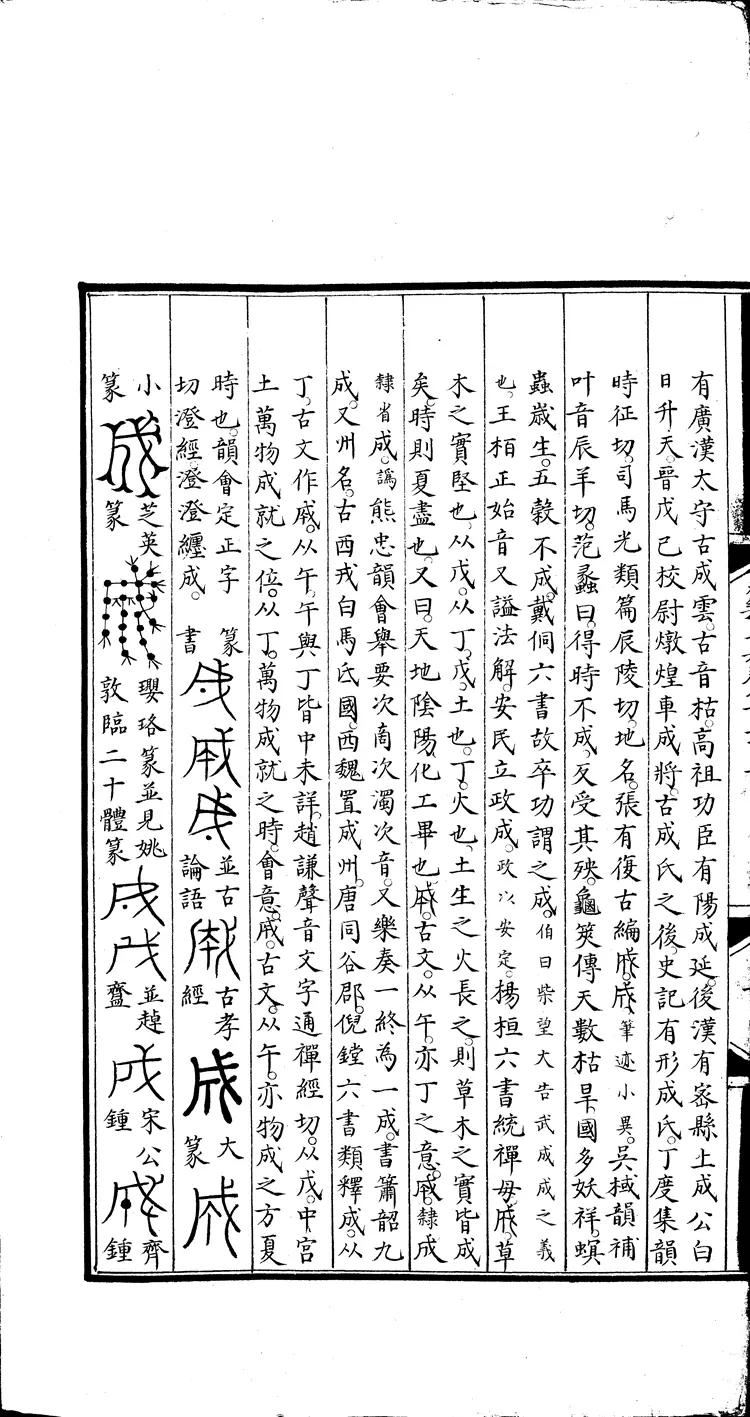 有廣漢太守古成雲。古音枯。高祖功臣有陽成延。後漢有密縣上成公白
日升天。晉戊己校尉燉煌車成將。古成氏之後。史記有形成氏。丁度集韻
時征切。司馬光類篇辰陵切。地名。張有復古編筆迹小異。吳棫韻補
叶音辰羊切。范蠡曰。得時不成。反受其殃。龜筴傳天數枯旱。國多妖祥。螟
蟲歲生。五穀不成。戴侗六書故卒功謂之成。伯曰柴望大告武成成之義
也。王柏正始音又謚法解。安民立政成。政以安定。楊桓六書統禪毋草
木之實堅也。从戊。从丁。戊。土也。丁。火也。土生之火長之。則草木之實皆成
矣。時則夏盡也。又曰。天地陰陽化工畢也。古文。从午。亦丁之意。隸成
隸省成。譌。熊忠韻會舉要次啇次濁次音。又樂奏一終為一成。書簫韶九
成。又州名。古西戎白馬氐國。西魏置成州。唐同谷郡。倪鏜六書類釋成。从
丁。古文作。从午。午與丁皆中未詳。趙謙聲音文字通禪經切。从戊。中宮
土。萬物成就之位。从丁。萬物成就之時。會意。古文。从午。亦物成之方夏
時也。韻會定正字
切澄經澄澄纏成。
篆書
並古論語
古孝經
大篆
小篆
芝英篆
瓔珞篆並見姚敦臨二十體篆
並齋
宋公鍾
齊鍾